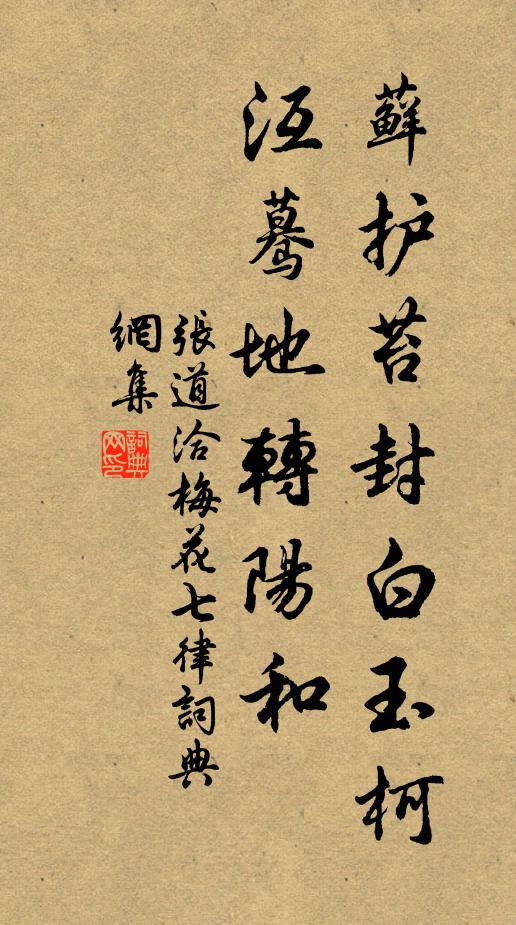 蘚护苔封白玉柯
沍驀地轉陽和
張道洽梅花七律詞典
網集
詞典
网印